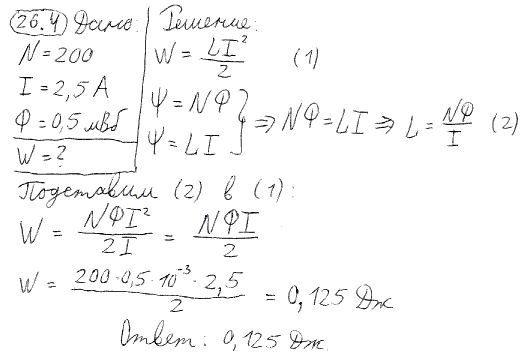 26.4 Дано: Решение:
N = 200
I = 2,5 А
Ф = 0,5 мВб
W = ?
W = LI²/2 (1)
Ψ = NФ
Ψ = LI } ⇒ NФ = LI ⇒ L = NФ/I (2)
Подставим (2) в (1):
W = NФI²/2I = NФI/2
W = 200·0,5·10⁻³·2,5/2 = 0,125 Дж
Ответ: 0,125 Дж.